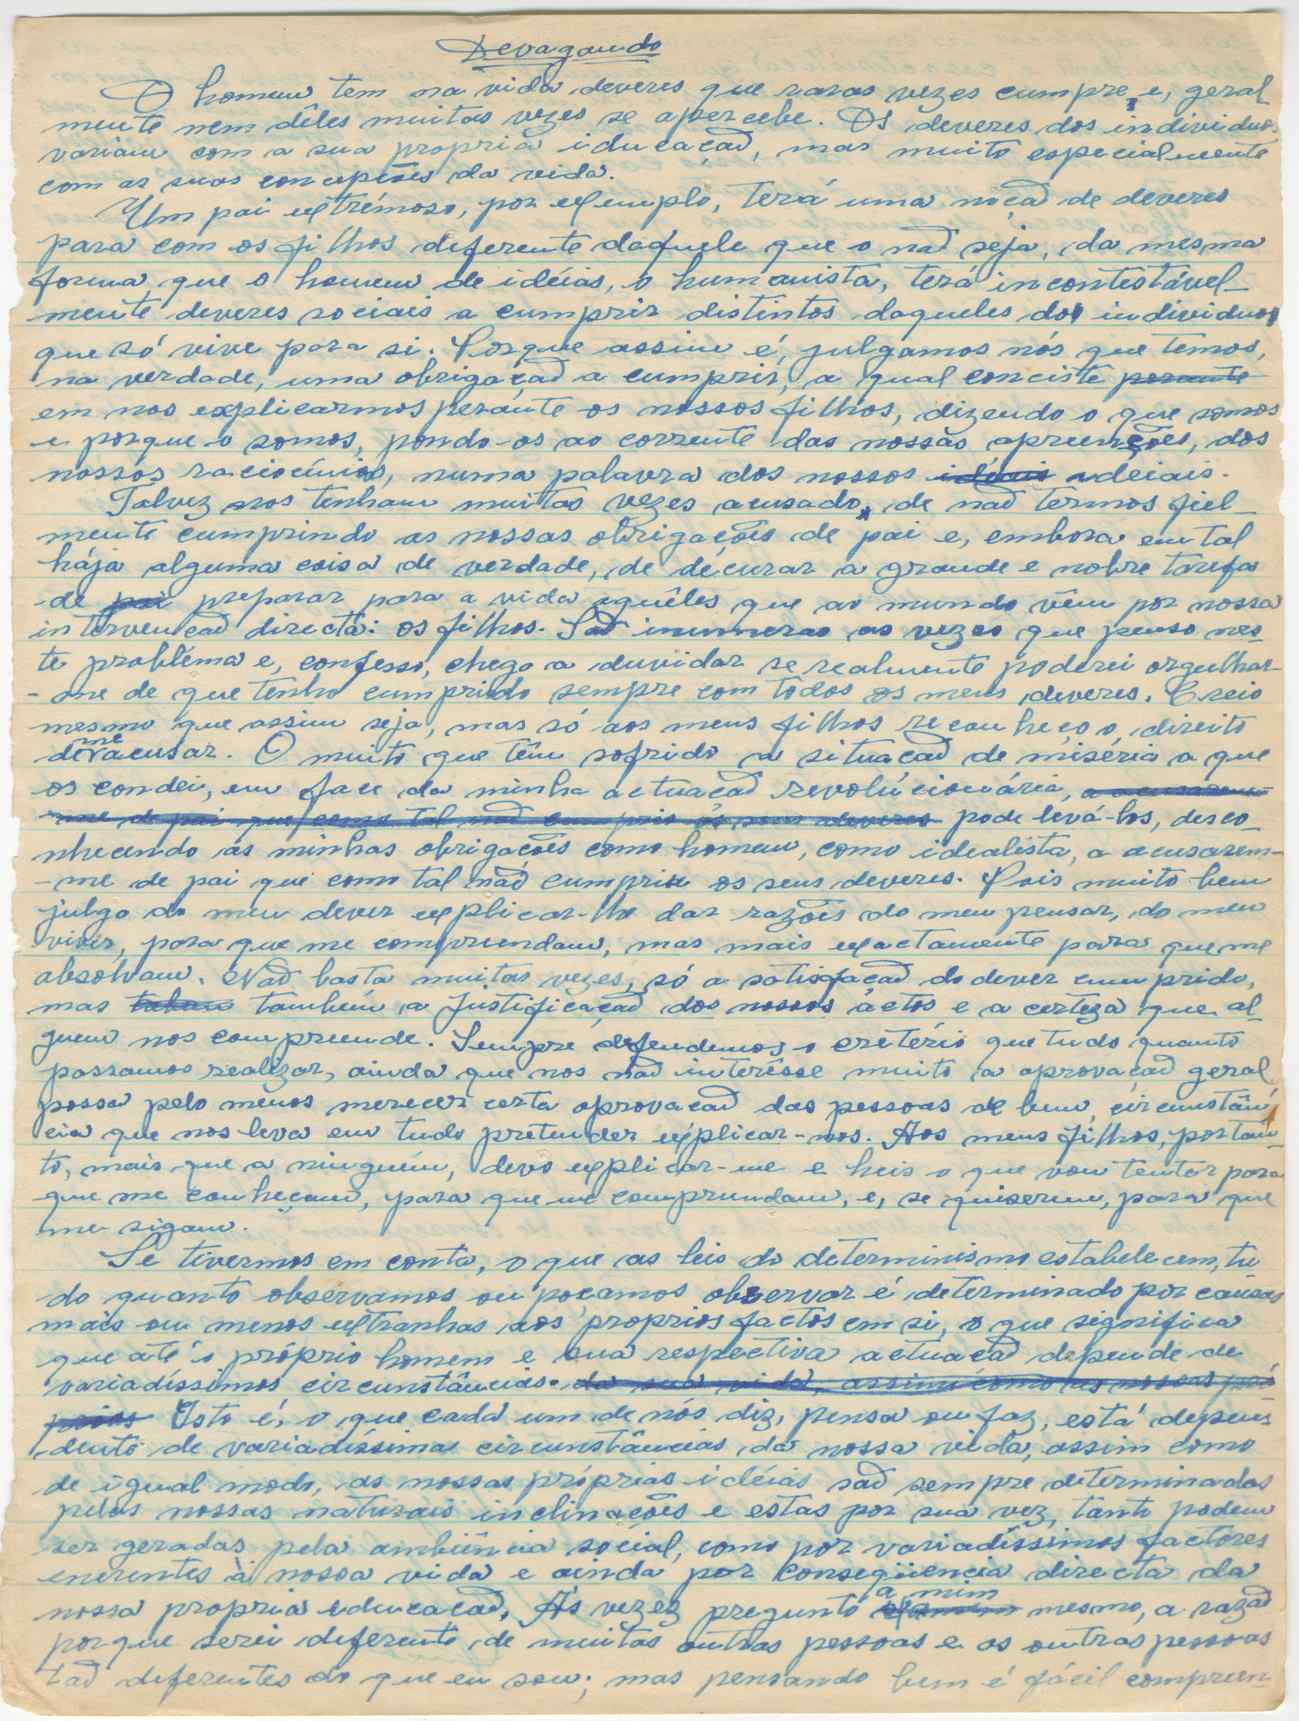 Devagando
O homem tem na vida deveres que raras vezes cumpre e, geral_
mente nem dêles muitas vezes se apercebe. Os deveres dos individuos
variam com a sua propria iducação, mas muito especialmente
com as suas concepções da vida.
Um pai extrémoso, por exemplo, terá uma noção de deveres
para com os filhos diferente daquele que o não seja, da mesma
forma que o homem de idéias, o humanista, terá incontestável_
mente deveres sociais a cumprir distintos daqueles do individuo
que só vive para si. Porque assim é, julgamos nós que temos,
na verdade, uma obrigação a cumprir, a qual conciste perante
em nos explicarmos perante os nossos filhos, dizendo o que somos
e porque o somos, pondo-os ao corrente das nossas apreenções, dos
nossos raciocínios, numa palavra dos nossos idéais ideiais.
Talvez nos tenham muitas vezes acusado, de não termos fiel_
mente cumprindo as nossas obrigações de pai e, embora em tal
hája alguma coisa de verdade, de décurar a grande e nobre tarefa
de pai preparar para a vida aquêles que ao mundo vêm por nossa
intervenção directa: os filhos. São inumeras as vezes que penso nes_
te probléma e, confesso, chego a duvidar se realmente poderei orgulhar_
-me de que tenho cumprido sempre com todos os meus deveres. Creio
mesmo que assim seja, mas só aos meus filhos reconheço o direito
de me acusar. O muito que têm sofrido a situação de miséria a que
os condei, em face da minha actuação revolúcionária, a acusarem
-me de pai que como tal não cumpriu os seus deveres pode levá-los, desco_
nhecendo ás minhas obrigações como homem, como idealista, a acusarem-
-me de pai que como tal não cumpriu os seus deveres. Pois muito bem
julgo do meu dever explicar-lhe dar razões do meu pensar, do meu
viver, para que me compreendam, mas mais exactamente para que me
absolvam. Não basta muitas vezes, só a satisfação do dever cumprido,
mas também a justificação dos nossos áctos e a certeza que al_
guem nos compreende. Sempre defendemos o cretério que tudo quanto
possamos realizar, ainda que nos não interésse muito a aprovação geral,
possa pelo menos merecer certa aprovação das pessoas de bem, circunstân_
cia que nos leva em tudo pretender explicar-nos. Aos meus filhos, portan_
to, mais que a ninguém, devo explicar-me e heis o que vou tentar para
que me conheçam, para que me compreendam, e, se quiserem, para que
me sigam.
Se tivermos em conta, o que as leis do determinismo estabelecem, tu_
do quanto observamos ou poçamos observar é determinado por causas
mais ou menos extranhas aos proprios factos em si, o que significa
que até o próprio homem e sua respectiva actuação depende de
variadíssimos circunstâncias. da sua vida, assim como as nossas pró
prias Isto é, o que cada um de nós diz, pensa ou faz, está depen_
dente de variadíssima circunstâncias da nossa vida, assim como
de igual modo, as nossas próprias idéias são sempre determinadas
pelas nossas naturais inclinações e estas por sua vez, tanto podem
ser geradas pela ambiência social, como por variadíssimos factores
enerentes à nossa vida e ainda por conseqüencia directa da
nossa propria educação. Ás vezez pregunto a mim mesmo, a razão
porque serei diferente de muitas outras pessoas e as outras pessoas
tão diferentes do que eu sou; mas pensando bem é fácil compreen_